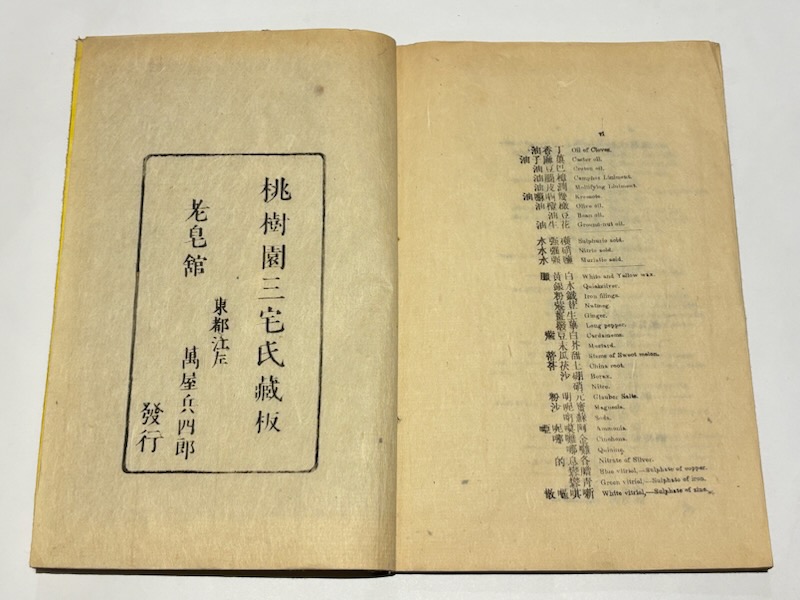 桃樹園三宅氏藏板
老皂館
東都江左
萬屋兵四郎
發行
vi
丁香油 Oil of Cloves.
蓖麻子油 Castor oil.
巴豆油 Croton oil.
樟腦油 Camphor Liniment.
潤皮油 Mollifying Liniment.
Kreosote.
Olive oil.
豆油 Bean oil.
花生油 Ground-nut oil.
磺强水 Sulphuric acid.
硝强水 Nitric acid.
鹽强水 Muriatic acid.
白黃臘 White and Yellow wax.
水銀 Quicksilver.
鐵粉 Iron filings.
Nutmeg.
生薑 Ginger.
Long pepper.
Cardamoms.
芥末 Mustard.
瓜蒂 Stems of Sweet melon.
土茯苓 China root.
硼沙 Borax.
硝 Nitre.
元明粉 Glauber Salts.
Magnesia.
Soda.
Ammonia.
Cinchona.
Quinine.
Nitrate of Silver.
Blue vitriol,—Sulphate of copper.
Green vitriol,—Sulphate of iron.
White vitriol,—Sulphate of zinc.